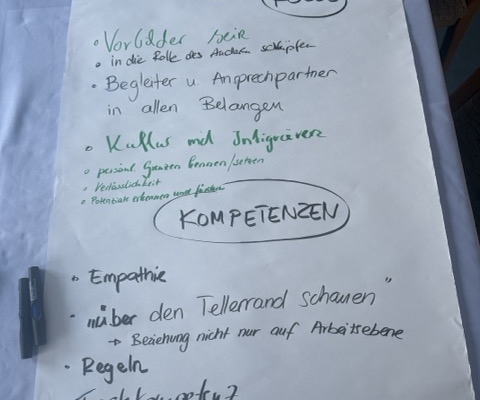 • Vorbilder sein
• in die Rolle des Anderen schlüpfen
• Begleiter u. Ansprechpartner
in allen Belangen
• Kultur und
• persönl. Grenzen kennen/setzen
• Verlässlichkeit
• Potentiale erkennen und fördern
KOMPETENZEN
• Empathie
• "über den Tellerrand schauen"
→ Beziehung nicht nur auf Arbeitsebene
• Regeln